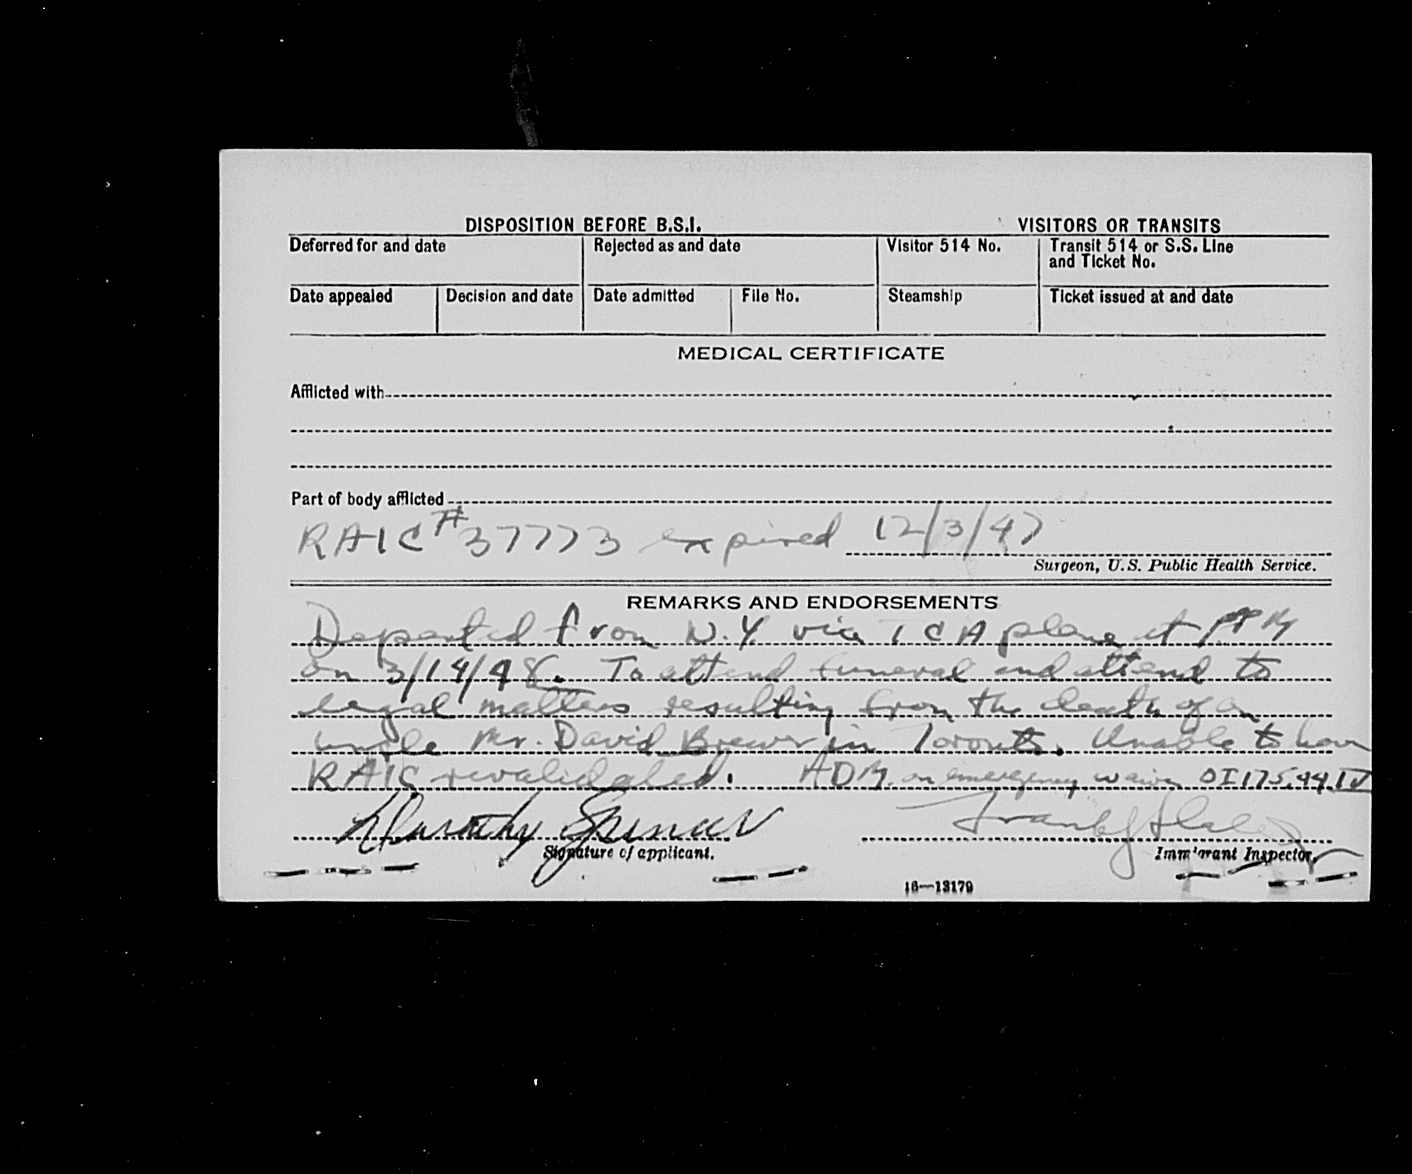 DISPOSITION BEFORE B.S.I. VISITORS OR TRANSITS
Deferred for and date Rejected as and date Visitor 514 No. Transit 514 or S.S. Line and Ticket No.
Date appealed Decision and date Date admitted File No. Steamship Ticket issued at and date
MEDICAL CERTIFICATE
Afflicted with
Part of body afflicted
RAIC # 37773 expired 12/3/47
Surgeon, U.S. Public Health Service.
REMARKS AND ENDORSEMENTS
Departed from N.Y. via TCA plane at
on 3/14/48. To attend funeral and attend to
legal matters resulting from the death of an
uncle Mr. David Brewer in Toronto. Unable to have
RAIC revalidated. ADM. on emergency waiver OI 175.44
Dorothy Spencer
Signature of applicant. Immigrant Inspector.
16—13179